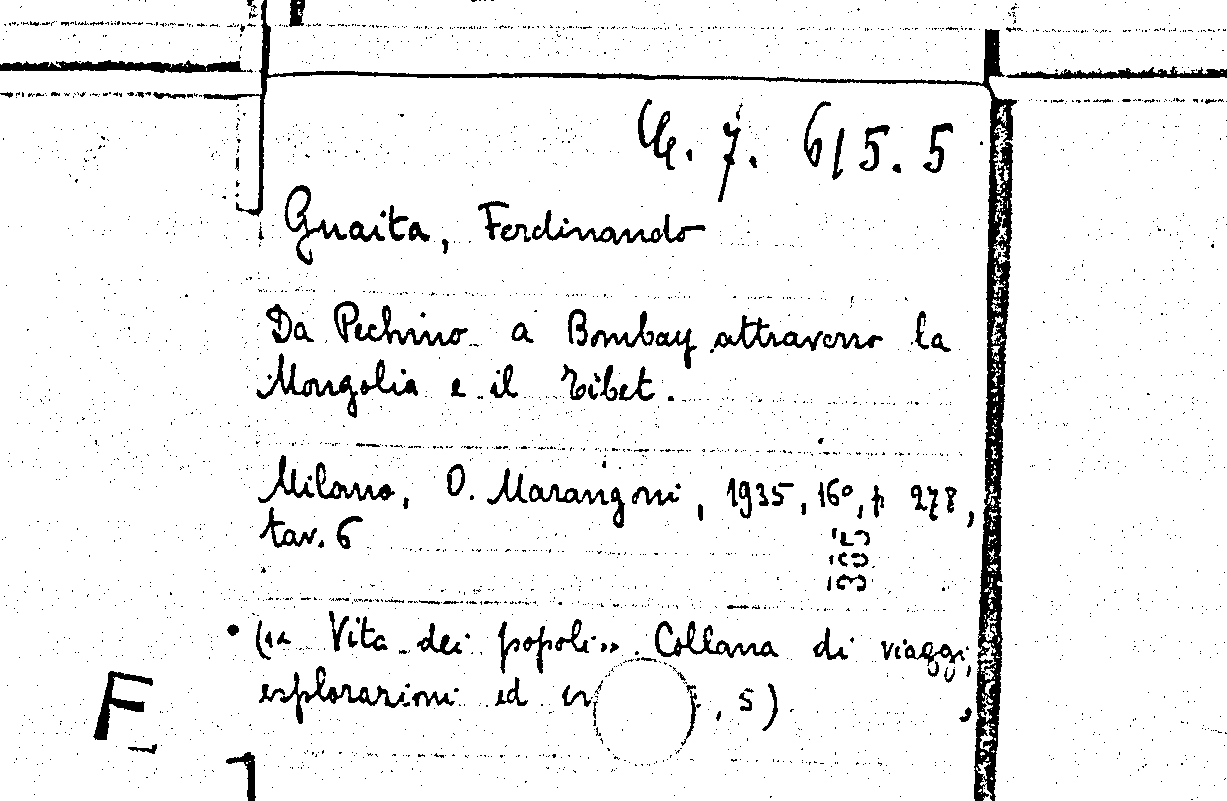 7. 615.5
Guaita, Ferdinando
Da Pechino a Bombay attraverso la
Mongolia e il Tibet.
Milano, O. Marangoni, 1935, 16°, p 278,
tav. 6
(«« Vita dei popoli»» Collana di viaggi,
esplorazioni ed , 5)
F